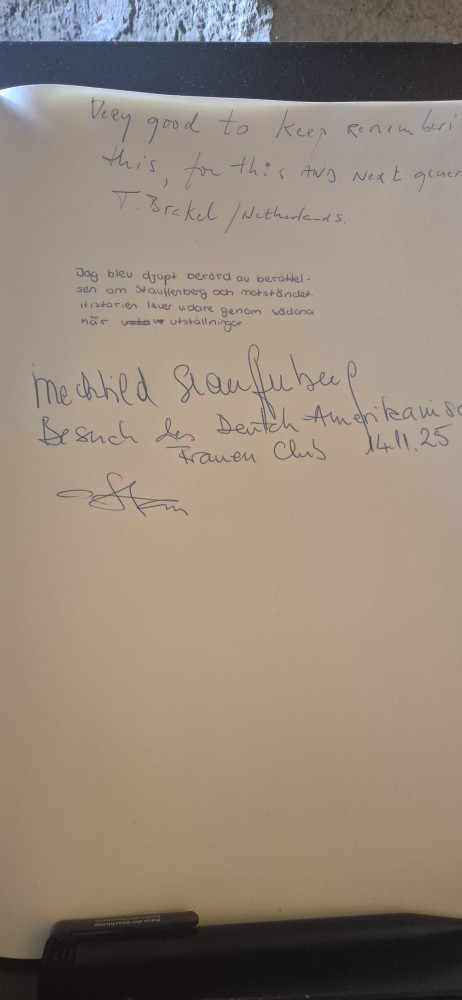 Very good to keep rememberi
this, for this AND Next gener
T. Brakel / Netherlands.
Jag blev djupt berörd av berättel-
sen om Stauffenberg och motståndet.
Historien lever vidare genom sådana
här utställningar
Mechtild Stauffenberg
Besuch des Deutch-Amerikanisc
Frauen Club 14.11.25
Haus der Geschichte